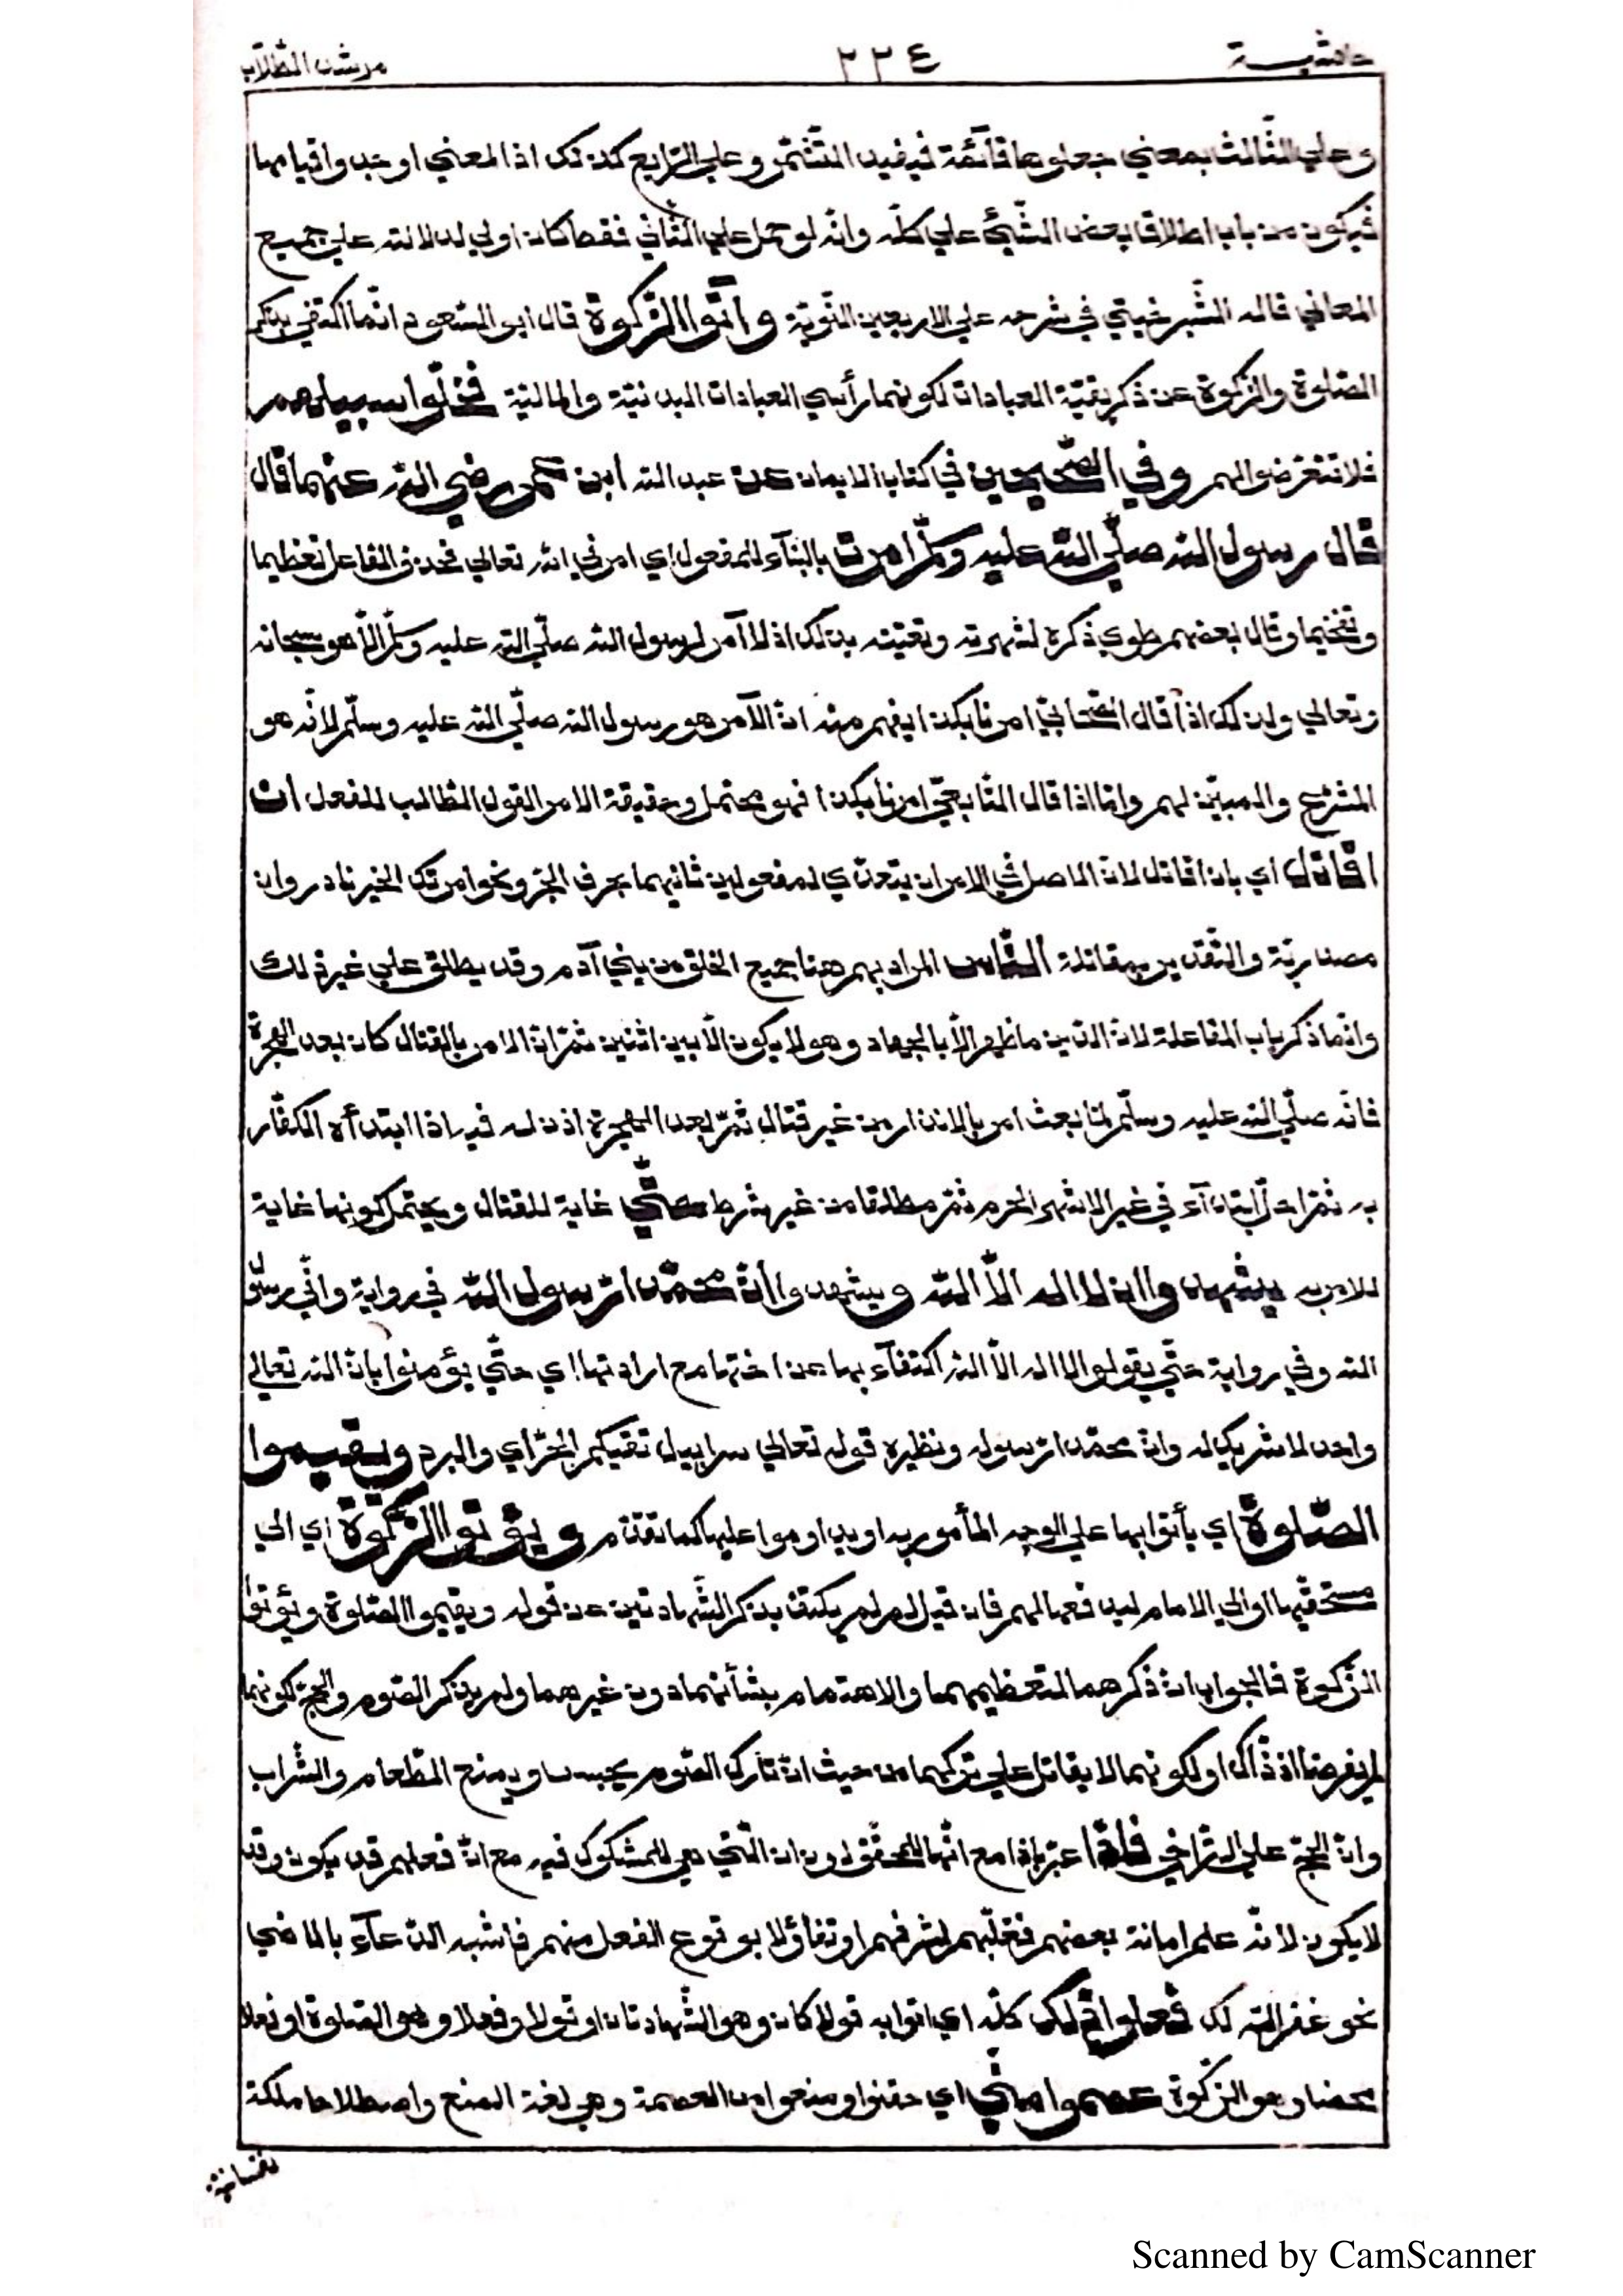 حاشية ٢٢٤ مرشد الطّلّاب
وعلي الثّالث بمعني جعلوها قآئمة فيفيد التّشّمر وعلي الرّابع كذلك اذ المعني اوجدوا قيامها
فيكون من باب اطلاق بعض الشّيئ علي كلّه وانّه لو حمل علي الثّاني فقط كان اولي لدلالته علي جميع
المعاني قاله الشّبرخيتي في شرحه علي الاربعين النّوويّة وآتوا الزّكوة قال ابو السّعود انّما اكتفي بذكر
الصّلوة والزّكوة عن ذكر بقيّة العبادات لكونهما رأسي العبادات البدنيّة والماليّة فخلّوا سبيلهم
فلا تتعرّضوا لهم وفي الصّحيحين في كتاب الايمان عن عبد الله ابن عمر رضي الله عنهما قال
قال رسول الله صلّي الله عليه وسلّم امرت بالبنآء للمفعول اي امرني الله تعالي فحذف الفاعل تعظيما
وتفخيما وقال بعضهم طوي ذكره لشهرته وتعيّنه بذلك اذ لا آمر لرسول الله صلّي الله عليه وسلّم الّا هو سبحانه
وتعالي ولذلك اذا قال الصّحابيّ امرنا بكذا يفهم منه انّ الآمر هو رسول الله صلّي الله عليه وسلّم لانّه هو
المشرّع والمبيّن لهم وامّا اذا قال التّابعيّ امرنا بكذا فهو محتمل وحقيقة الامر القول الطّالب للفعل ان
اقاتل اي بان اقاتل لانّ الاصل في الامر ان يتعدّي لمفعولين ثانيهما بحرف الجرّ ونحو امرتك الخير نادر وان
مصدريّة والتّقدير بمقاتلة النّاس المراد بهم هنا جميع الخلق من بني آدم وقد يطلق علي غير ذلك
وانّما ذكر باب المفاعلة لانّ الدّين ما ظهر الّا بالجهاد وهو لا يكون الّا بين اثنين ثمّ انّ الامر بالقتال كان بعد الهجرة
فانّه صلّي الله عليه وسلّم لمّا بعث امر بالانذار من غير قتال ثمّ بعد الهجرة اذن له فيه اذا ابتدأه الكفّار
به ثمّ احلّ ابتدآء في غير الاشهر الحرم ثمّ مطلقا من غير شرط حتّي غاية للقتال ويحتمل كونها غاية
للامر به يشهدوا ان لا اله الّا الله ويشهدوا انّ محمّدا رّسول الله في رواية وانّي رسول
الله وفي رواية حتّي يقولوا لا اله الّا الله اكتفآء بها عن اختها مع ارادتها اي حتّي يؤمنوا بانّ الله تعالي
واحد لا شريك له وانّ محمّدا رّسوله ونظيره قوله تعالي سرابيل تقيكم الحرّ اي والبرد ويقيموا
الصّلوة اي يأتوا بها علي الوجه المأمور به او يداوموا عليها كما تقدّم ويؤتوا الزّكوة اي الي
مستحقّيها او الي الامام ليدفعها لهم فان قيل لم لم يكتف بذكر الشّهادتين عن قوله ويقيموا الصّلوة ويؤتوا
الزّكوة فالجواب انّ ذكرهما لتعظيمهما والاهتمام بشأنهما دون غيرهما ولم يذكر الصّوم والحجّ لكونهما
لم يفرضا اذ ذّاك او لكونهما لا يقاتل علي تركهما من حيث انّ تارك الصّوم يحبس ويمنع الطّعام والشّراب
وانّ الحجّ علي التّراخي فاذا عبّر باذا مع انّها للمحقّق دون ان الّتي هي للمشكوك فيه مع انّ فعلهم قد يكون وقد
لا يكون لانّه علم امانة بعضهم فغلّبهم لشرفهم او تفاؤلا بوقوع الفعل منهم فاشبه الدّعآء بالماضي
نحو غفر الله لك فعلوا ذلك كلّه اي اتوا به قولا كان وهو الشّهادتان او قولا وفعلا وهو الصّلوة او فعلا
محضا وهو الزّكوة عصموا منّي اي حقنوا ومنعوا من العصمة وهي لغة المنع واصطلاحا ملكة
نفسانيّة
Scanned by CamScanner